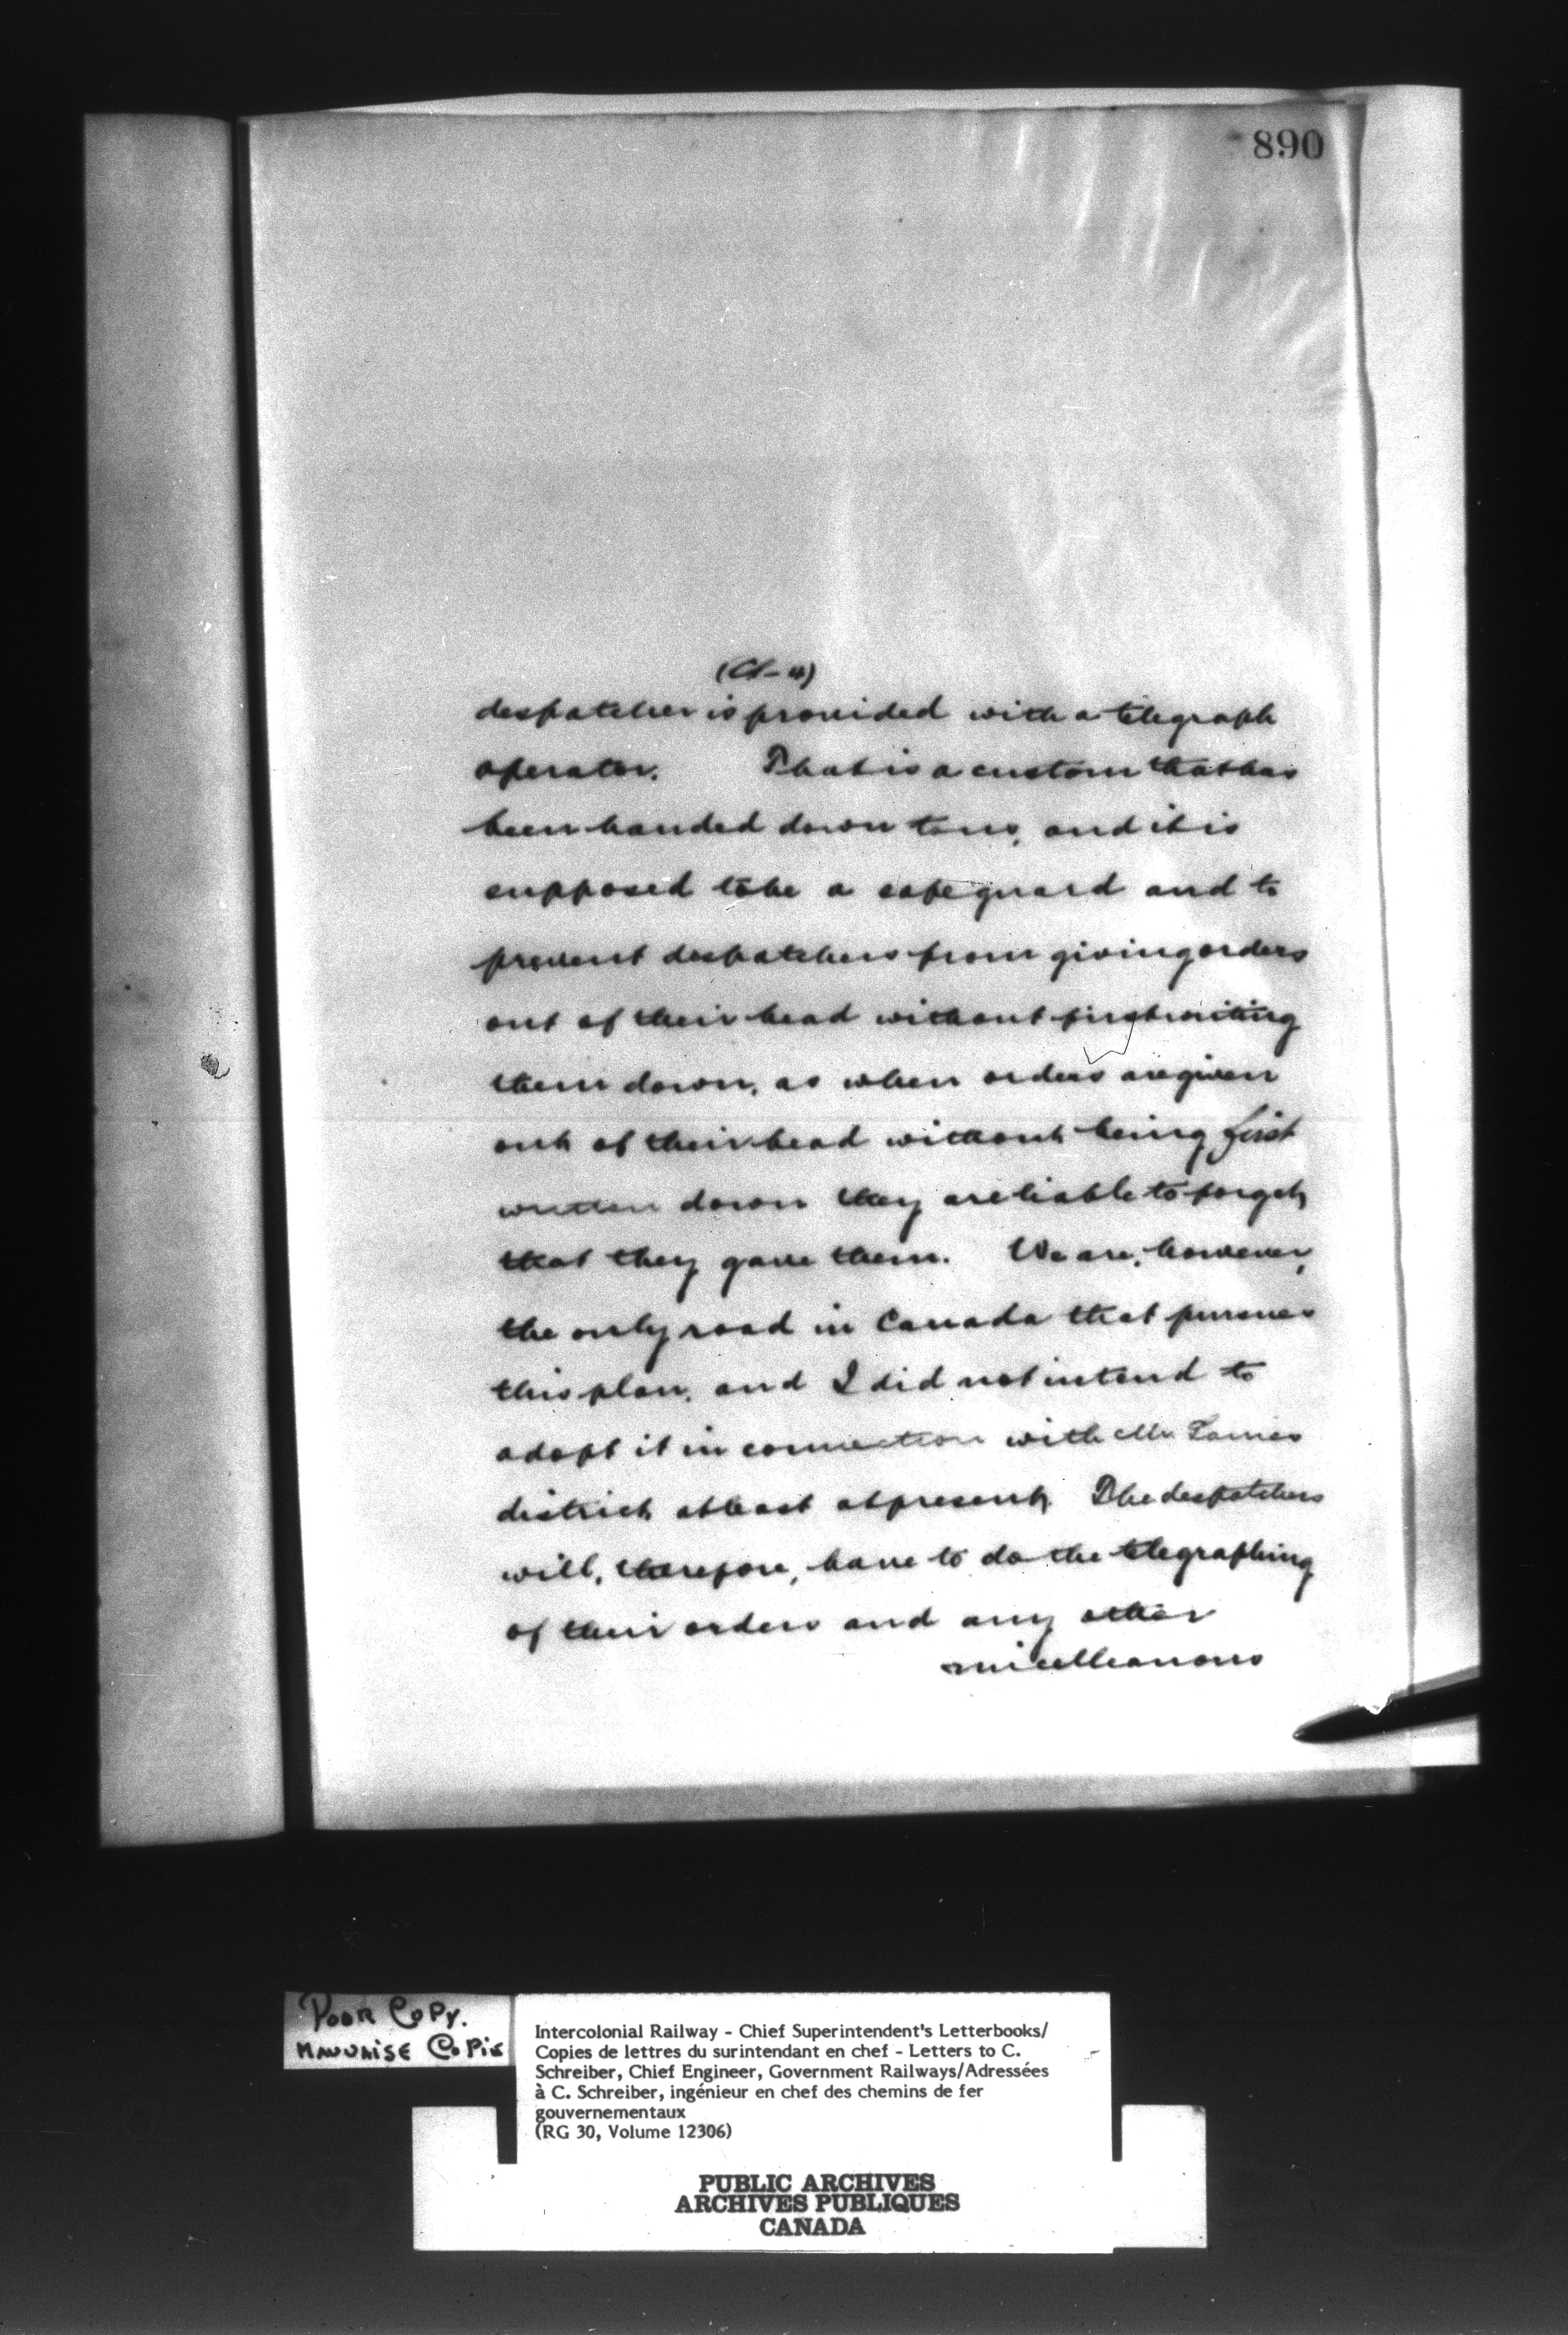 890
despatcher is provided with a telegraph
operator. That is a custom that has
been handed down to us, and it is
supposed to be a safeguard and to
prevent despatchers from giving orders
out of their head without first writing
them down, as when orders are given
out of their head without being first
written down they are liable to forget
that they gave them. We are, however,
the only road in Canada that pursues
this plan, and I did not intend to
adopt it in connection with Mr.
district at least at present. The despatchers
will, therefore, have to do the telegraphing
of their orders and any other
micelleanous
POOR COPY.
MAUVAISE COPIE
Intercolonial Railway - Chief Superintendent's Letterbooks/
Copies de lettres du surintendant en chef - Letters to C.
Schreiber, Chief Engineer, Government Railways/Adressées
à C. Schreiber, ingénieur en chef des chemins de fer
gouvernementaux
(RG 30, Volume 12306)
PUBLIC ARCHIVES
ARCHIVES PUBLIQUES
CANADA